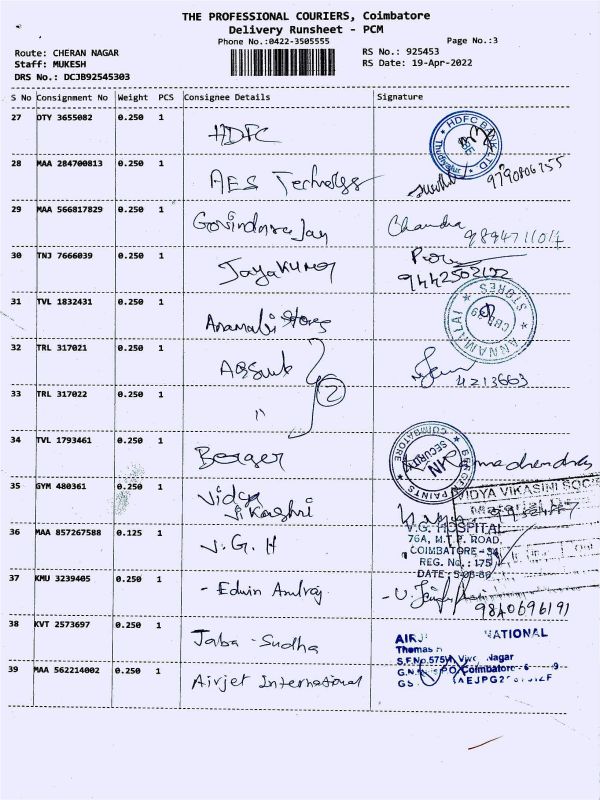 THE PROFESSIONAL COURIERS, Coimbatore
Delivery Runsheet - PCM
Phone No.:0422-3505555
Page No.:3
Route: CHERAN NAGAR
RS No.: 925453
Staff: MUKESH
RS Date: 19-Apr-2022
DRS No.: DCJB92545303
S No Consignment No Weight PCS Consignee Details Signature
27 OTY 3655082 0.250 1 HDFC
HDFC BANK LTD
28 MAA 284700813 0.250 1 AES Technology 9790806755
29 MAA 566817829 0.250 1 Govindarajan Chandra
30 TNJ 7666039 0.250 1 Jayakumar
31 TVL 1832431 0.250 1 Anamalai Stores
ANNAMALAI STORES
32 TRL 317021 0.250 1
4213663
33 TRL 317022 0.250 1 " 2
34 TVL 1793461 0.250 1 Berger
COIMBATORE SECURITY PAINTS
35 GYM 480361 0.250 1 Vidya Vikashni
VIDYA VIKASINI
36 MAA 857267588 0.125 1 V.G.H
V.G. HOSPITAL
76A, M.T.P. ROAD,
COIMBATORE - 34
REG. No. : 175
DATE
37 KMU 3239405 0.250 1 - Edwin Antroj
9840696191
38 KVT 2573697 0.250 1 Jaba - Sudha
39 MAA 562214002 0.250 1 Airjet International
AIRJ NATIONAL
Thomas
S.F.No.575 Nagar
Coimbatore